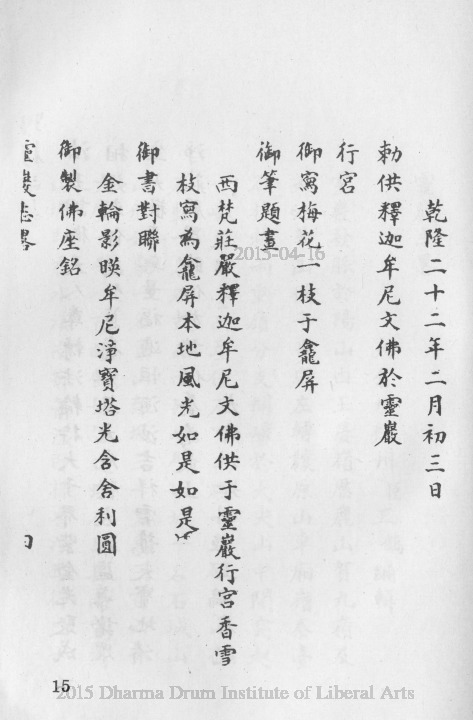 乾隆二十二年二月初三日
勅供釋迦牟尼文佛於靈巖
行宮
御寫梅花一枝于龕屏
御筆題畫
西梵莊嚴釋迦牟尼文佛供于靈巖行宮香雪
枝寫為龕屏本地風光如是如是
御書對聯
金輪影暎牟尼淨寶塔光含舍利圓
御製佛座銘
靈巖志畧
15
2015-04-16
2015 Dharma Drum Institute of Liberal Arts